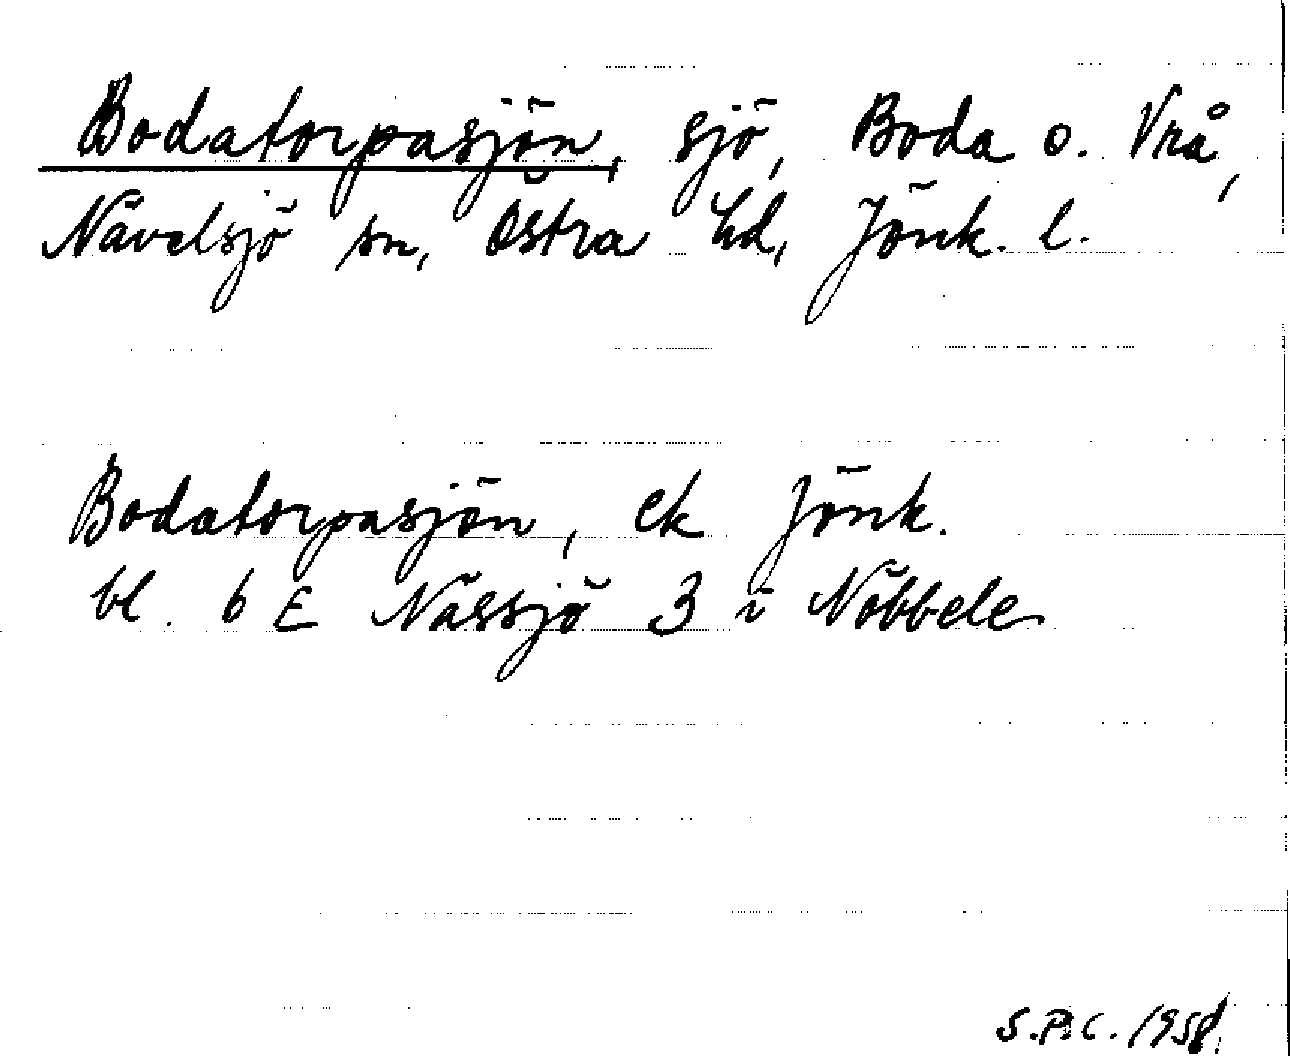 Bodatorpasjön, sjö, Boda o. Vrå,
Nävelsjö sn, Östra hd, Jönk. l.
Bodatorpasjön, ek Jönk.
bl. 6 E Nässjö 3 i Nöbbele
S.P.C. 1958.